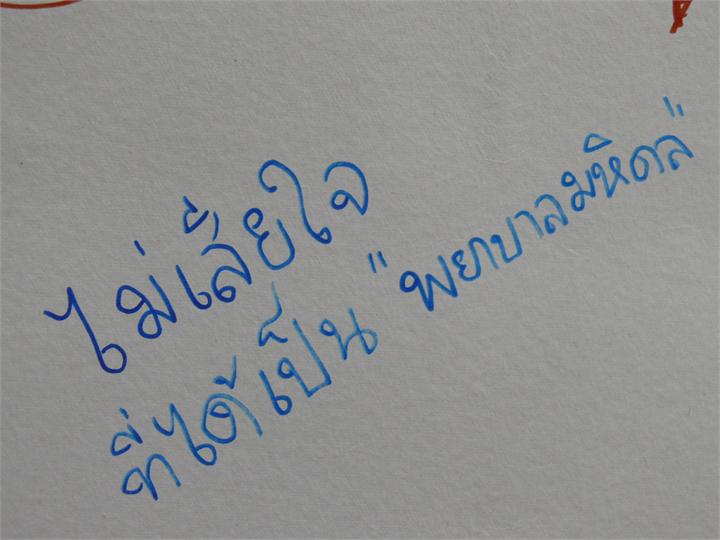 ไม่เสียใจ
ที่ได้เป็น "พยาบาลมหิดล"